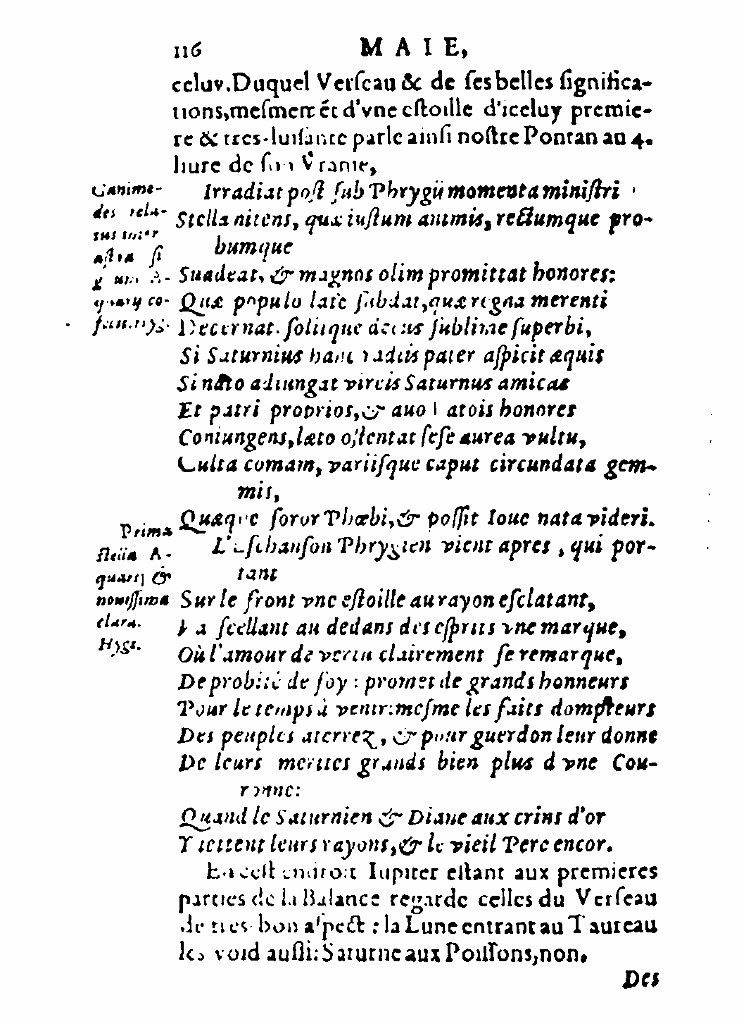 116 MAIE,
celuy.Duquel Verſeau & de ſes belles ſignifica-
tions,meſmemēt d'vne eſtoille d'iceluy premie-
re & tres-luiſante parle ainſi noſtre Pontan au 4.
liure de ſon Vranie,
Irradiat poſt ſub Phrygii momenta miniſtri
Stella nitens, quæ iuſtum animis, rectumque pro-
bumque
Suadeat, & magnos olim promittat honores:
Quæ populo late ſubdat,quæ regna merenti
Decernat. ſoliique decus ſublime ſuperbi,
Si Saturnius hanc radiis pater aſpicit æquis
Si nato adiungat vireis Saturnus amicas
Et patri proprios,& auo Latois honores
Coniungens,læto oſtentat ſeſe aurea vultu,
Culta comam, variiſque caput circundata gem-
mis,
Quæque ſoror Phœbi,& poſſit Ioue nata videri.
L'Eſchanſon Phrygien vient apres , qui por-
tant
Sur le front vne eſtoille au rayon eſclatant,
Va ſcellant au dedans des eſprits vne marque,
Où l'amour de vertu clairement ſe remarque,
De probité de ſoy : promet de grands honneurs
Pour le temps à venir:meſme les faits dompteurs
Des peuples aterrez, & pour guerdon leur donne
De leurs merites grands bien plus d'vne Cou-
ronne:
Quand le Saturnien & Diane aux crins d'or
Y iettent leurs rayons,& le vieil Pere encor.
En ceſt endroit Iupiter eſtant aux premieres
parties de la Balance regarde celles du Verſeau
de tres-bon aſpect : la Lune entrant au Taureau
les void auſſi: Saturne aux Poiſſons,non.
Des
Ganime-
des rela-
tus inter
aſtra ſi
gnum A-
quarij co-
Hyg.
Prima
ſtella A-
quarij &
nouiſſima
clara.
Hyg.